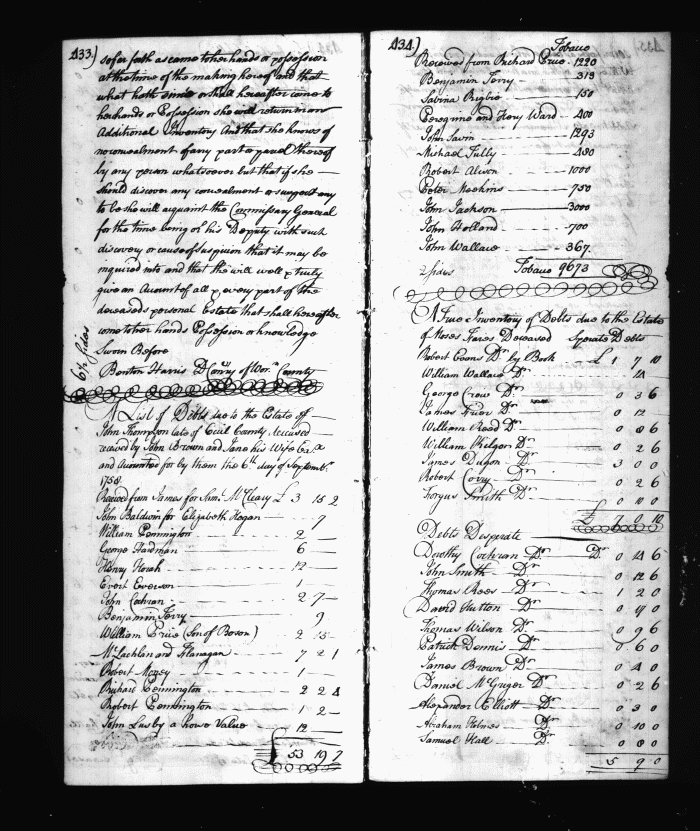 433)
so far forth as came to her hands or possession
at the time of the making hereof and that
what hath since or shall hereafter come to
her hands or Possession she will return in an
Additional Inventory And that she knows of
no concealment of any part or parcel thereof
by any person whatsoever but that if she
should discover any concealment or suspect any
to be she will acquaint the Commissary General
for the time being of his Deputy with such
discovery or cause of suspicion that it may be
inquired into and that she will well & truly
give an Account of all & every part of the
deceaseds personal Estate that shall hereafter
come to her hands Possession or knowledge
Sworn Before
Benton Harris D Comry of Worr County
6½ sides
A List of Debts due to the Estate of
John Thompson late of Cecil County deceased
received by John Brown and Jane his Wife
and Accounted for by them the 6th day of Septembr
1758
Received from James for Simn McCleary £ 3 15 2
John Baldwin for Elizabeth Hogan 7
William Pennington 2 —
George Hardman 6 —
Henry 12 —
Evert Everson 1 —
John Cochran 2 7 —
Benjamin Terry 9
William Price (Son of Boson) 2 15 —
McLachlan and Flanagan 7 2 1
Robert Money 1 —
Richard Pennington 2 2 4
Robert Pennington 1 2 —
John Lusby a horse Value 12 —
£ 53 19 7
434)
Tobacco
Received from Richard Price 1220
Benjamin Terry 313
Sabina Rigbie 150
Peregrine and Henry Ward 400
John Savin 1293
Michael Tully 480
Robert Alison 1000
Peter Meekins 750
John Jackson 3000
John Holland 700
John Wallace 367
2 sides Tobacco 9673
A True Inventory of Debts due to the Estate
of Moses Fares Deceased Sperate Debts
Robert Coons Dr by Book £ 1 7 10
William Wallace Dr 14
George Crow Dr 0 3 6
James Dr 0 12
William Reed Dr 0 8 6
William Kilgor Dr 0 2 6
James Dugon Dr 3 0 0
Robert Corry Dr 0 2 6
Forgus Smith Dr 0 10 0
£ 7 0 10
Debts Desperate
Dorothy Cochran Dr Dr 0 14 6
John Smith Dr 0 12 6
Thomas Rees Dr 1 2 0
David Hutton Dr 0 4 0
Thomas Wilson Dr 0 9 6
Patrick Dennis Dr 0 6 0
James Brown Dr 0 4 0
Daniel McGriger Dr 0 2 6
Alexander Elliott Dr 0 3 0
Abraham Holmes Dr 0 10 0
Samuel Hall Dr 0 8 0
5 9 0